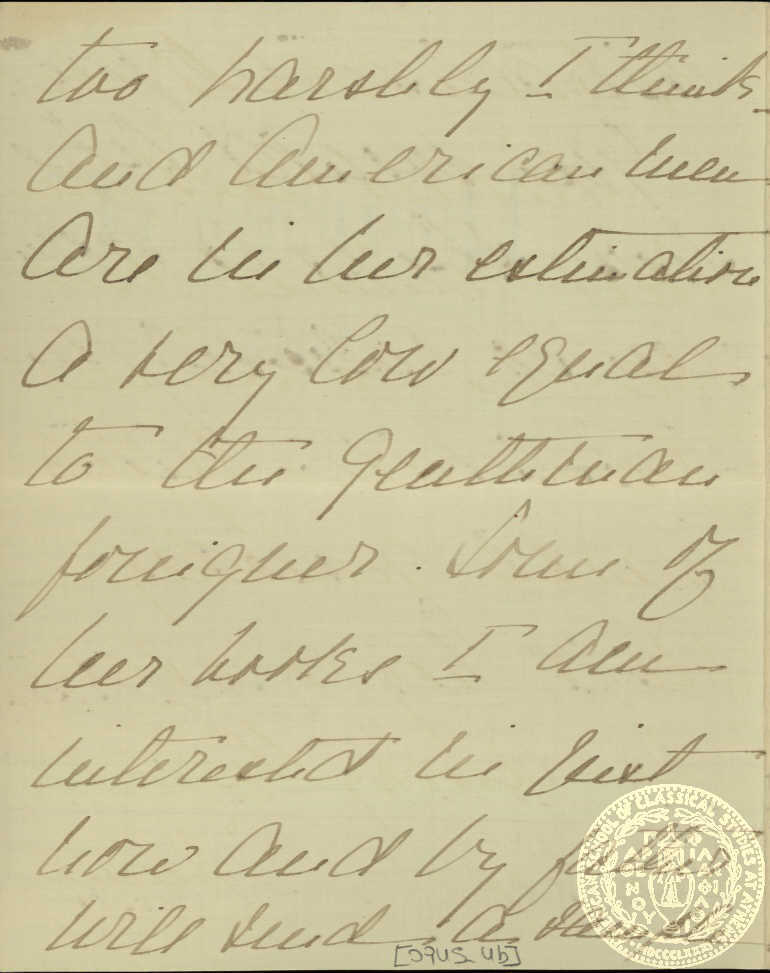 too harshly I think
and American men
are in her estimation
a very low equal
to the gentleman
foreigner. Some of
her books I am
interested in just
now and by
will send a
AMERICAN SCHOOL OF CLASSICAL STUDIES AT ATHENS